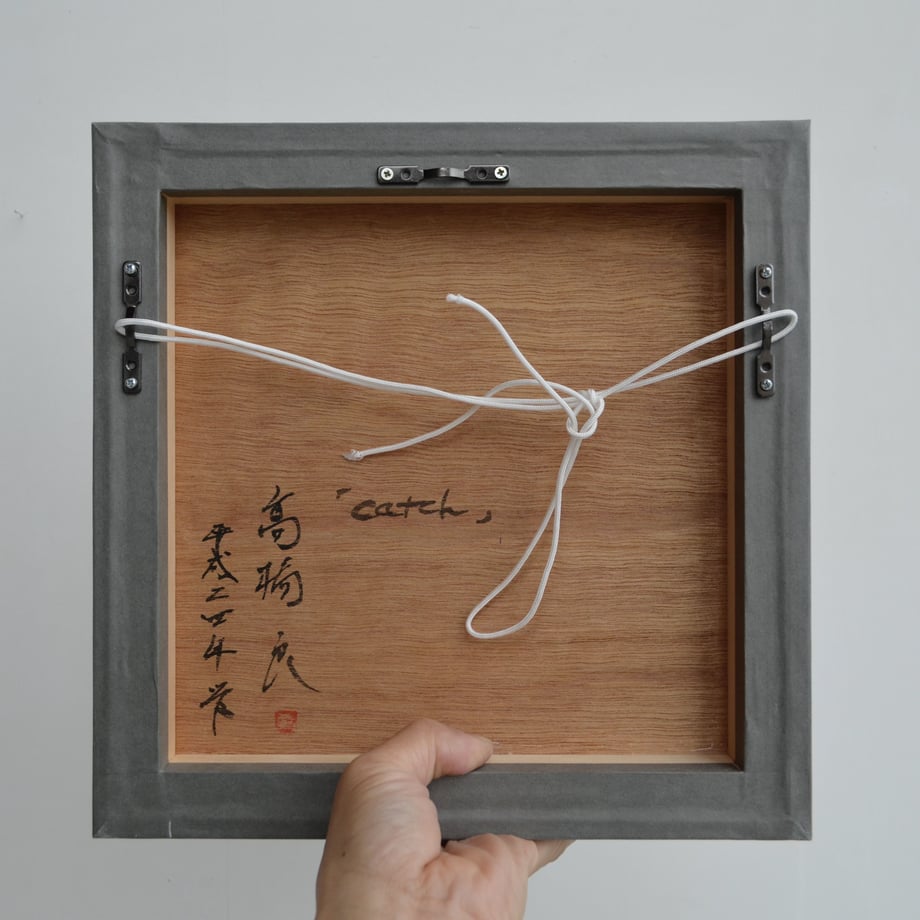 「catch」
高橋 良
平成二四年